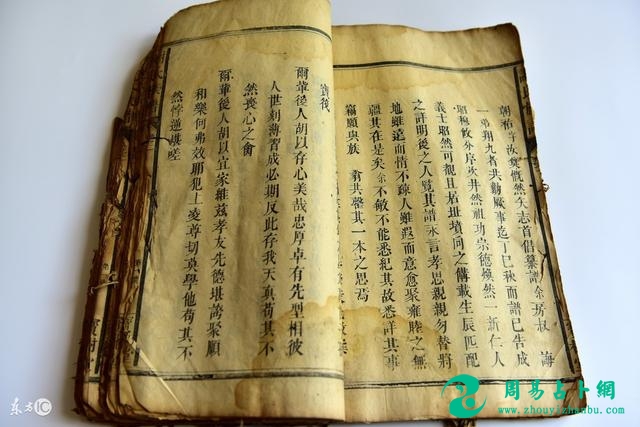 余房叔 誨
朝祐 慨然矢志首倡纂譜
一弟翔九者共勷厥事迄丁巳秋而譜已告成
昭穆攸分序次井然祖功宗德煥然一新仁人
義士昭然可觀且居址墳向之備載生辰匹配
之詳明後之人覽其譜永言孝思親親勿替將
地雖遠而情不疎人雖遐而意愈聚雍睦之無
疆其在是矣余不敏不能悉紀其故悉詳其事
竊願與族 共罄其一本之思焉
寶筏
爾輩後人胡以存心美哉忠厚卓有先型相彼
人世刻薄習成必期反此存我天真苟其不
然喪心之
爾輩後人胡以宜家維茲孝友先德堪誇聚順
和樂何弗效耶犯上凌尊切莫學他苟其不
然悖逆堪嗟
东方IC
周易占卜網
www.zhouyizhanbu.com